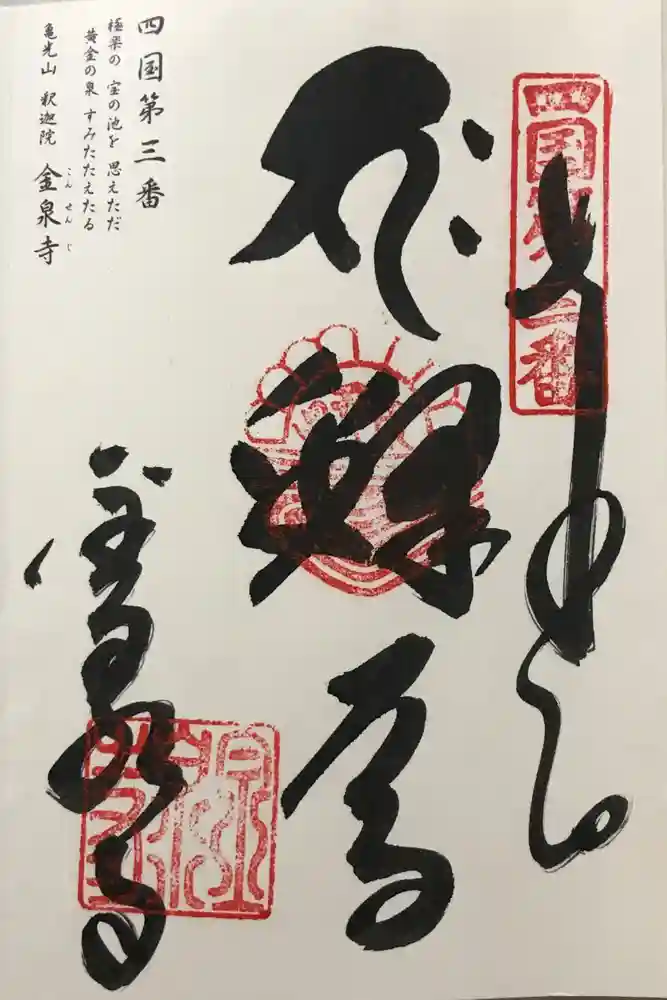 四国第三番
奉納
釋迦尊
四国第三番
極楽の 宝の池を 思えただ
黄金の泉 すみたたえたる
亀光山 釈迦院 金泉寺
こんせんじ
金泉寺